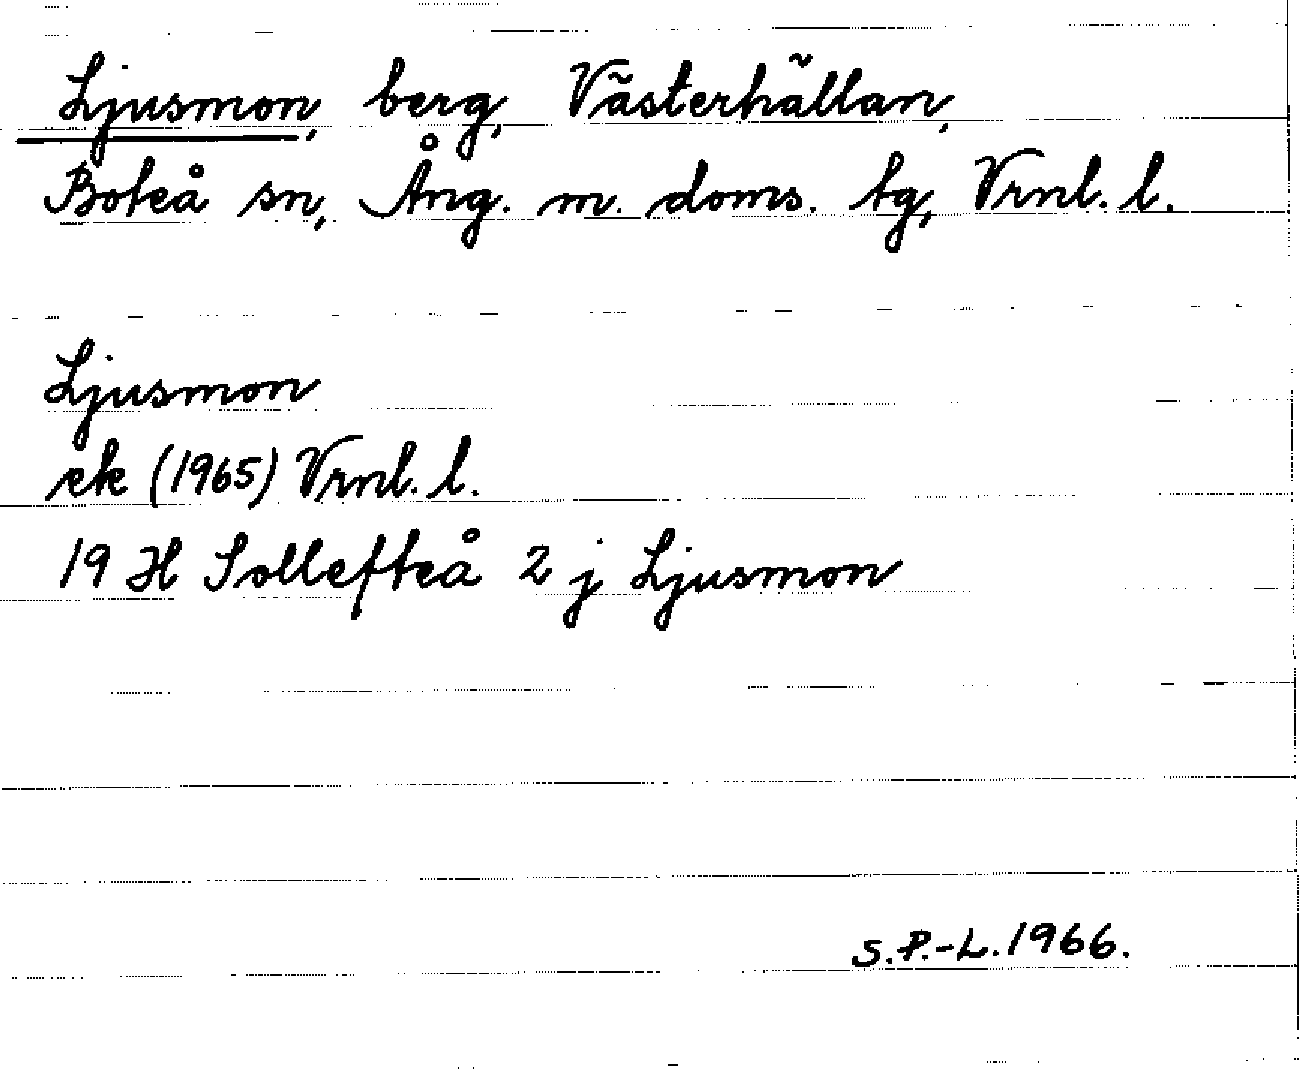 Ljusmon, berg, Västerhällan,
Boteå sn, Ång. m. doms. tg, Vrnl. l.
Ljusmon
ek (1965) Vrnl. l.
19 H Sollefteå 2 j Ljusmon
S.P.-L. 1966.